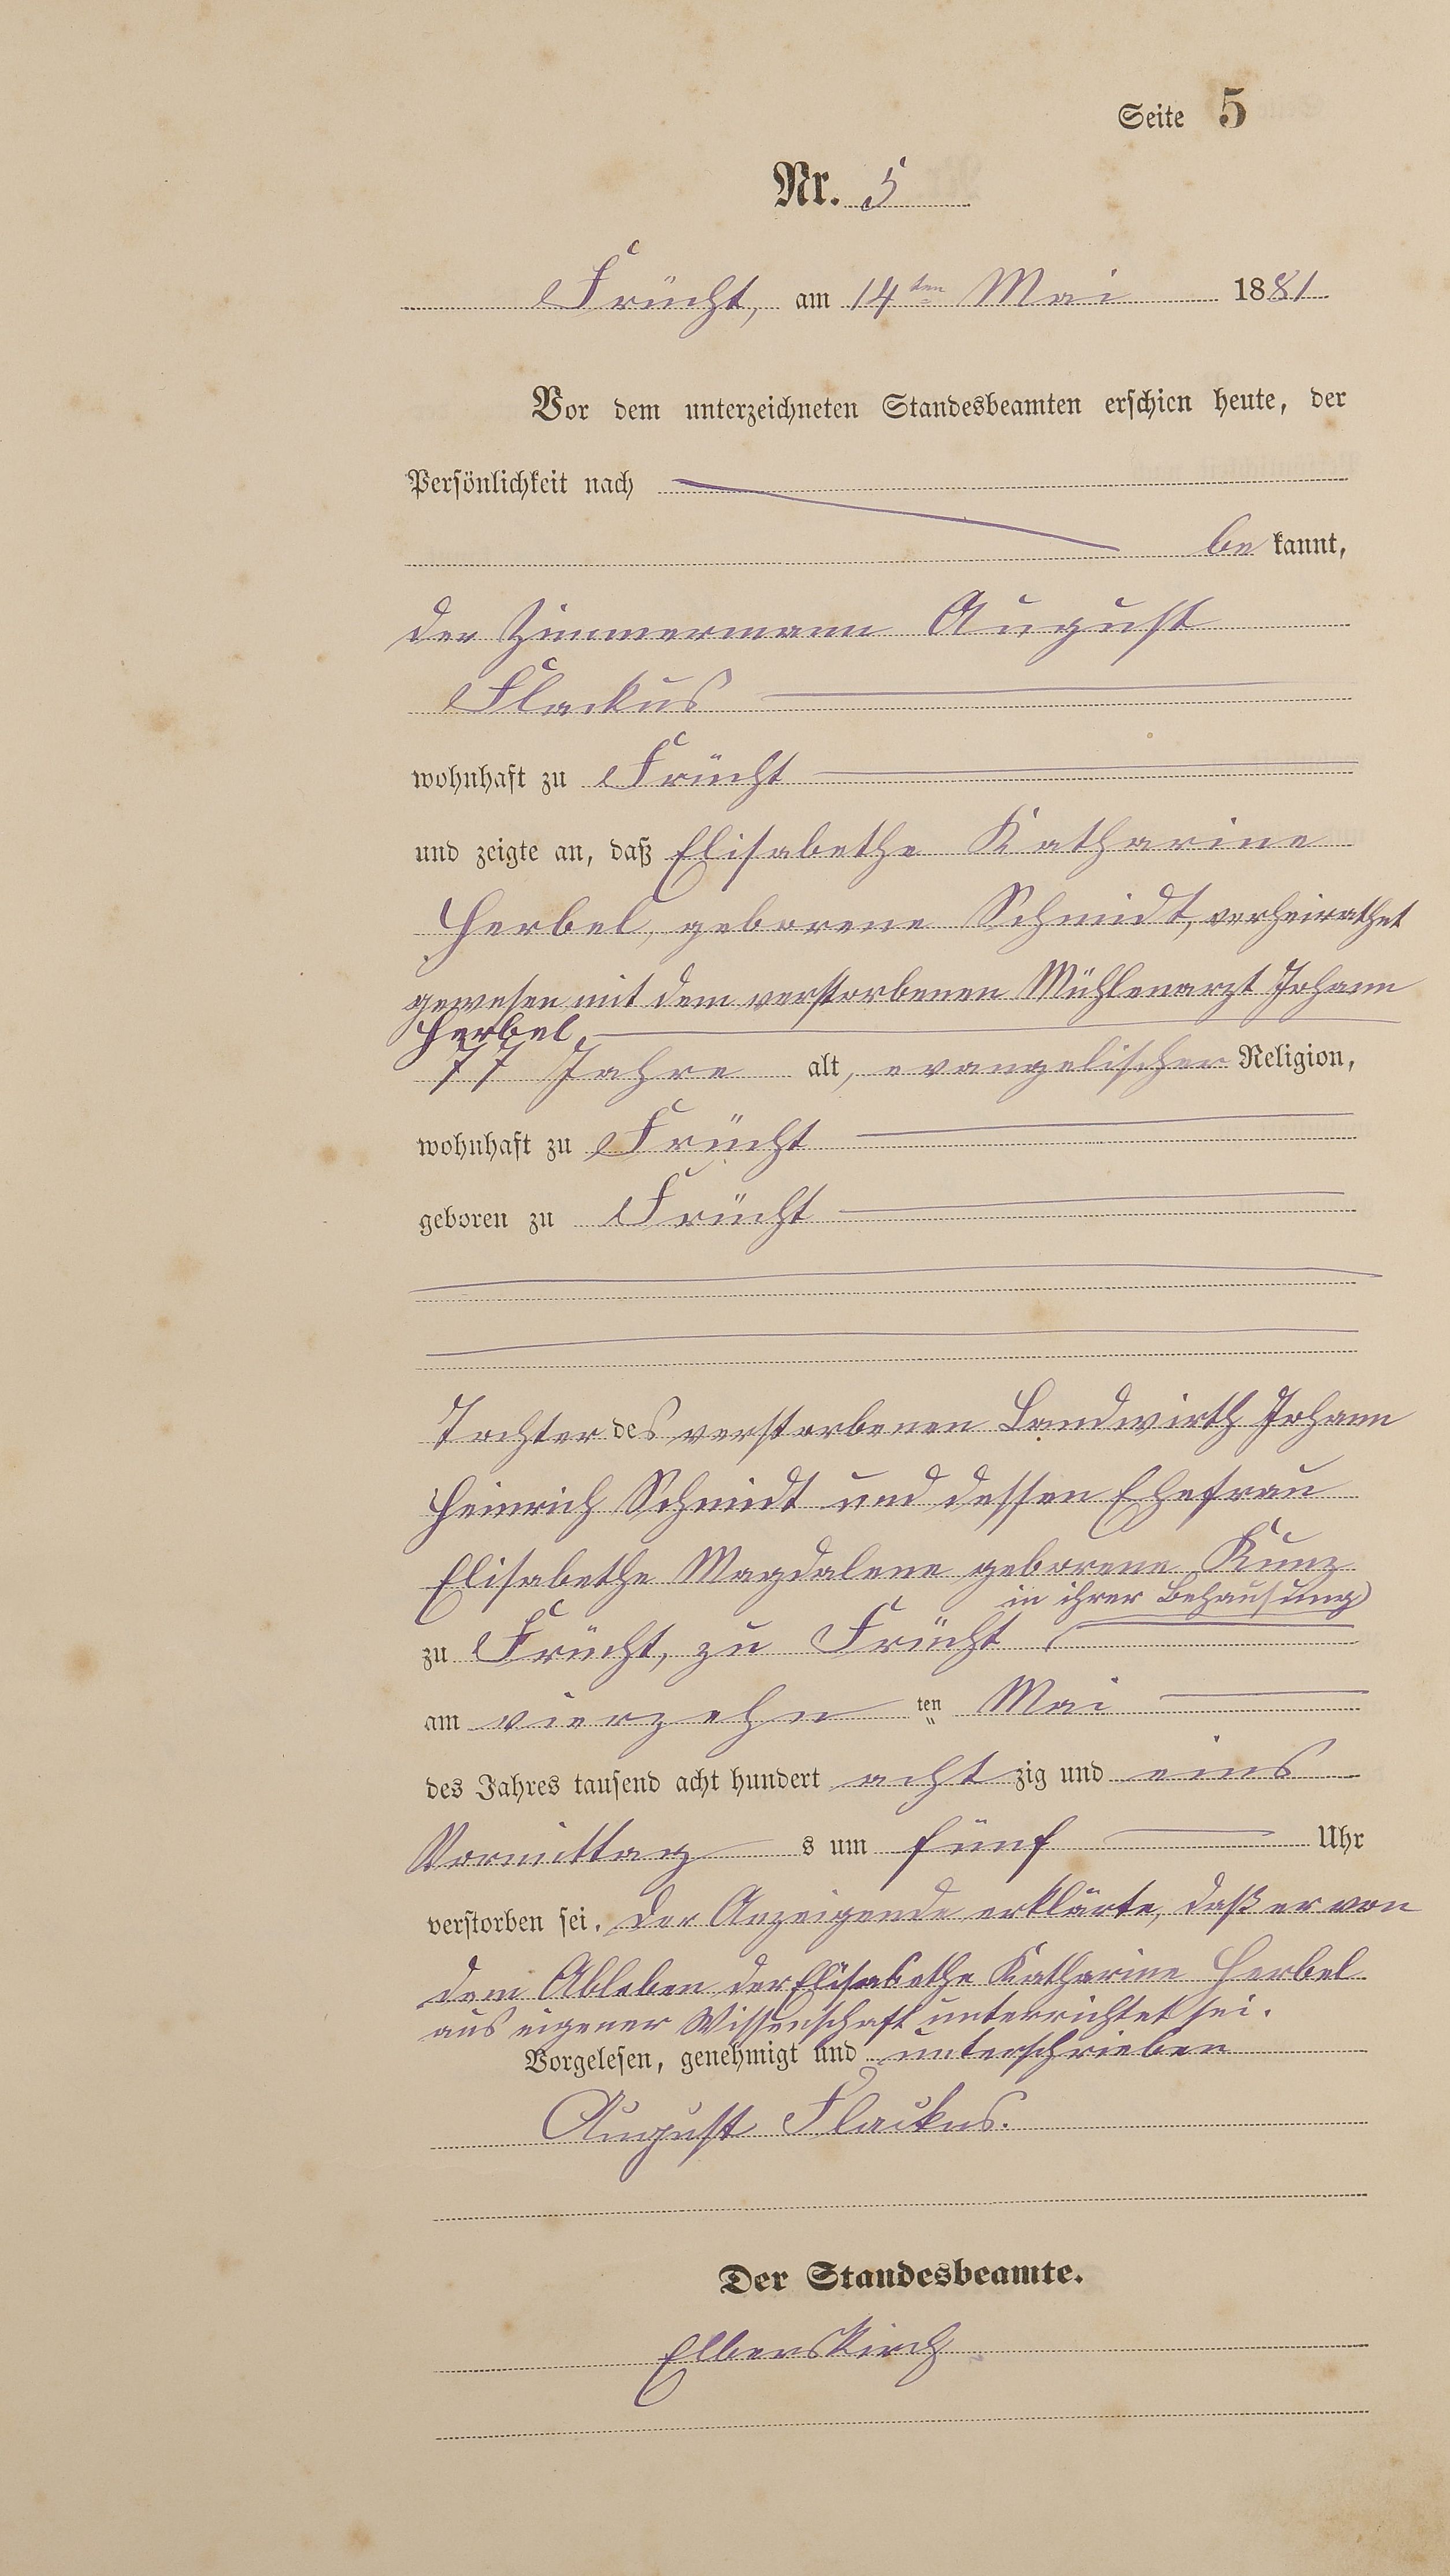 Seite 5
Nr. 5
Frücht, am 14ten Mai 1881
Vor dem unterzeichneten Standesbeamten erschien heute, der
Persönlichkeit nach
be kannt,
der Zimmermann August
Flackus
wohnhaft zu Frücht
und zeigte an, daß Elisabethe Katharine
Herbel, geborene Schmidt, verheirathet
gewesen mit dem verstorbenen Mühlenarzt Johann
Herbel,
77 Jahre alt, evangelischer Religion,
wohnhaft zu Frücht
geboren zu Frücht
Tochter des verstorbenen Landwirth Johann
Heinrich Schmidt und dessen Ehefrau
Elisabethe Magdalene geborene Kunz
in ihrer Behausung
zu Frücht, zu Frücht
am vierzehn ten Mai
des Jahres tausend acht hundert acht zig und eins
Vormittag s um fünf Uhr
verstorben sei. Der Anzeigende erklärte, daß er von
dem Ableben der Elisabethe Katharine Herbel
aus eigener Wissenschaft unterrichtet sei.
Vorgelesen, genehmigt und unterschrieben
August Flackus.
Der Standesbeamte.
Elberskirch